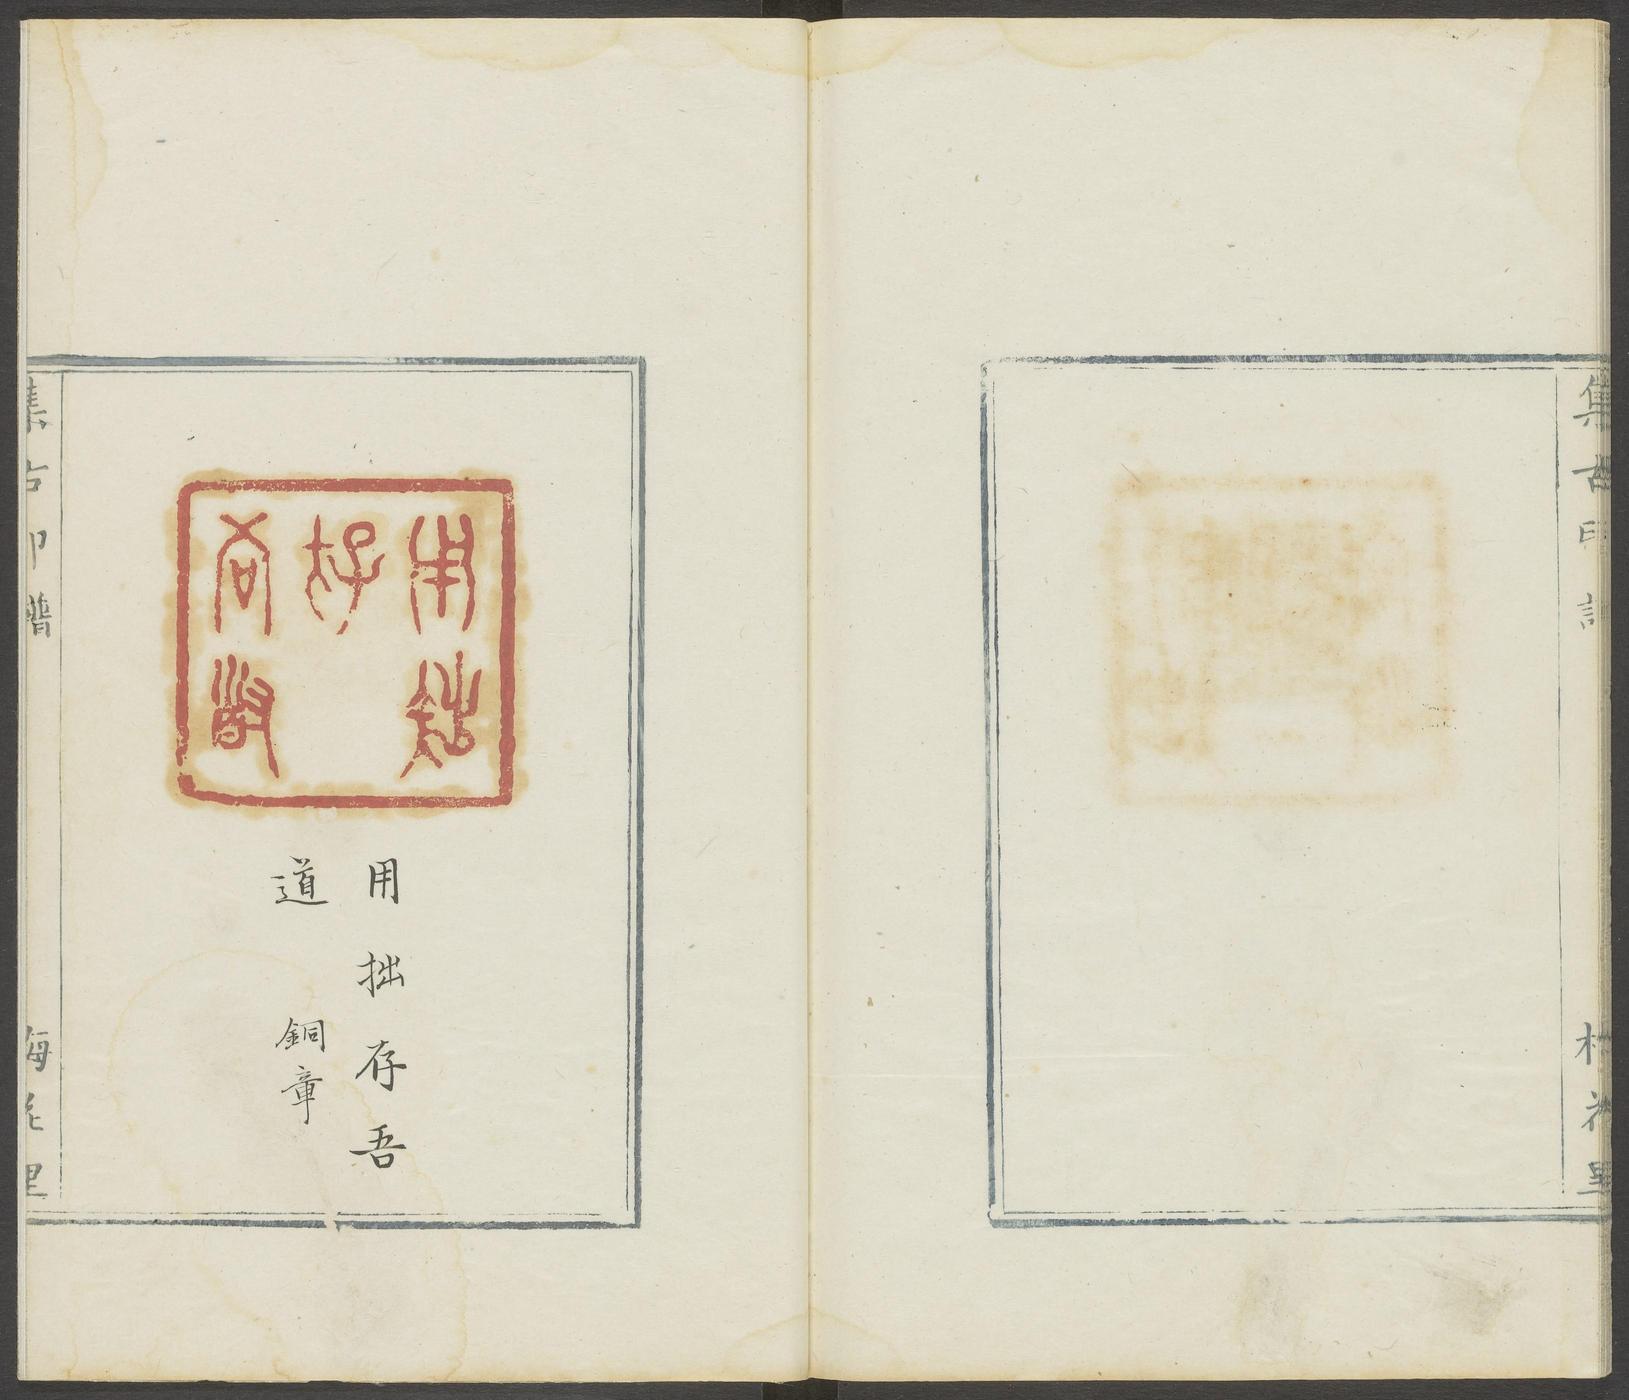 集古印譜
梅花里
用拙存吾
道
銅章
集古印譜
梅花里